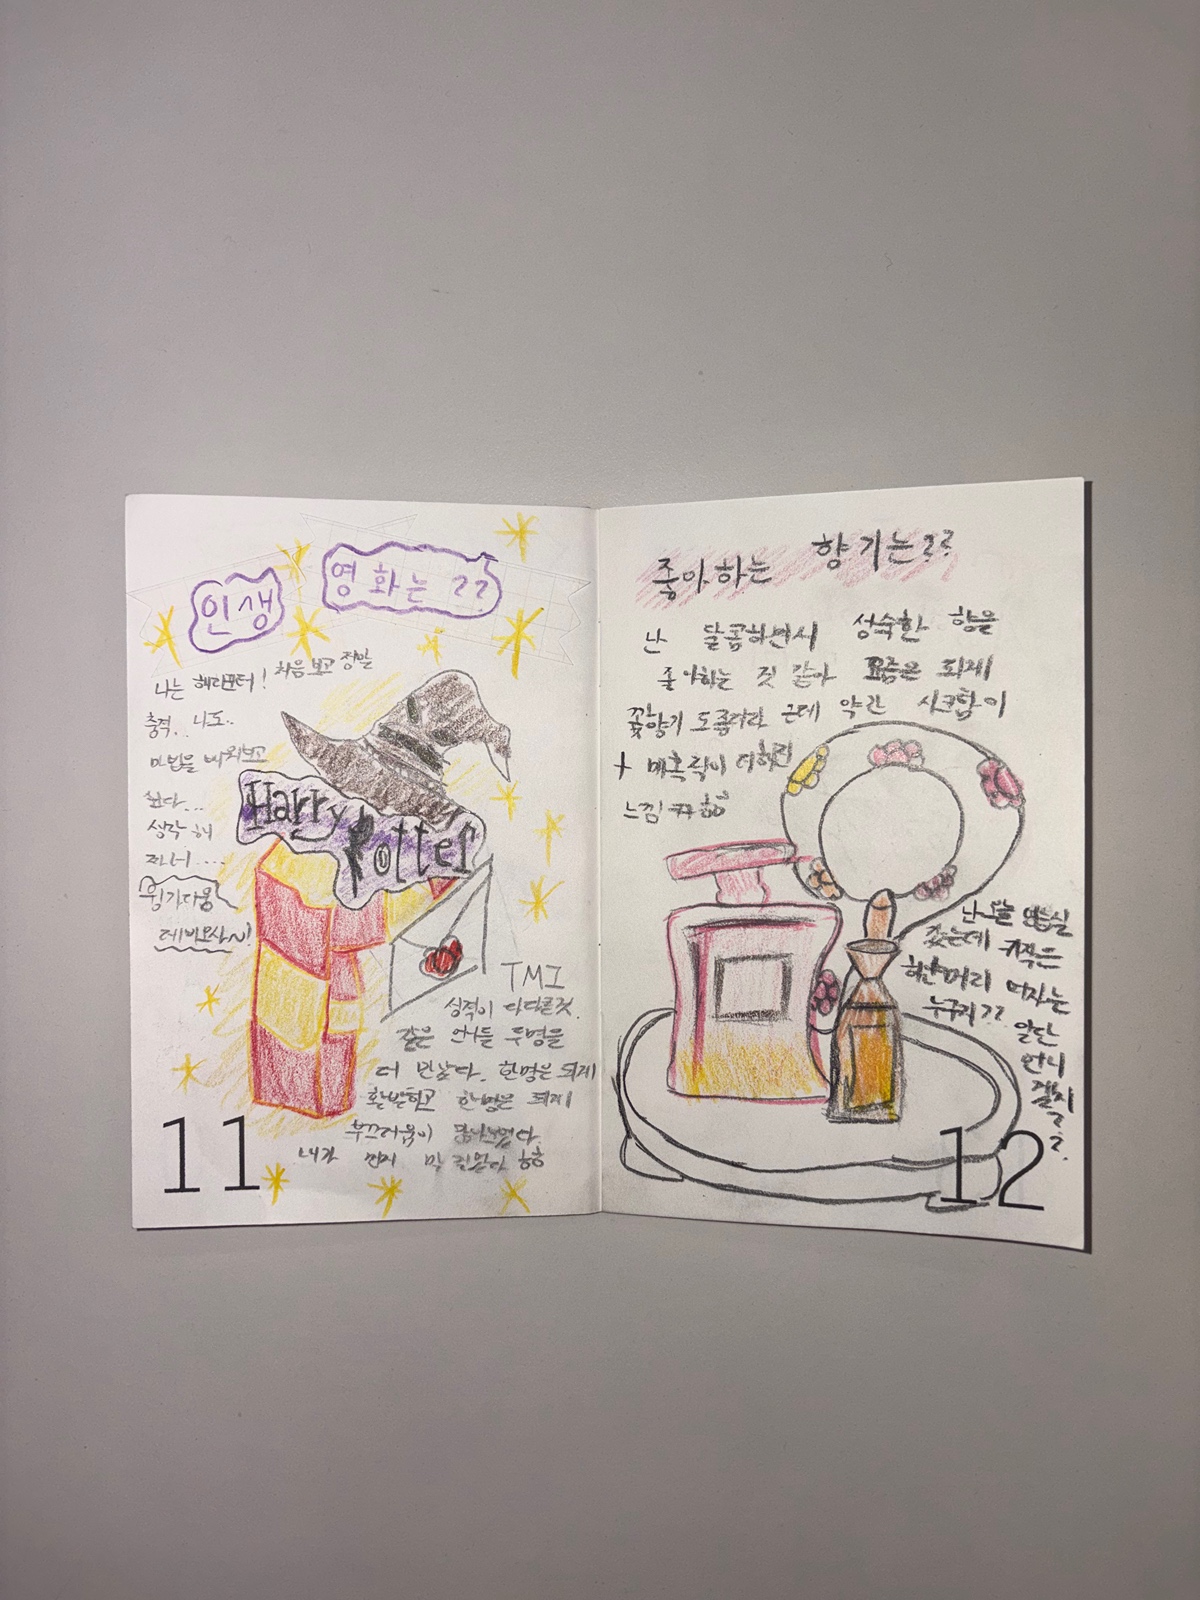 인생 영화는??
나는 해리포터! 처음 보고 정말
충격.. 나도..
마법을 배워보고
싶다...
생각 해
Harry
Potter
윙가디움
레비오사~!
TMI
성격이 다 다른것
같은 언니들 두명을
더 만났다. 한명은 되게
활발하고 한명은 되게
부끄러움이 많나보다
내가 먼저 막
11
좋아하는 향기는??
난 달콤하면서 성숙한 향을
좋아하는 것 같아 요즘은 되게
꽃향기 도 좋더라 근데 약간 시크함이
+ 매혹적이 더해진
느낌
난 오늘 연습실
갔는데 키작은
하얀머리 여자는
누구지??
일단
언니
겠지
?.
12